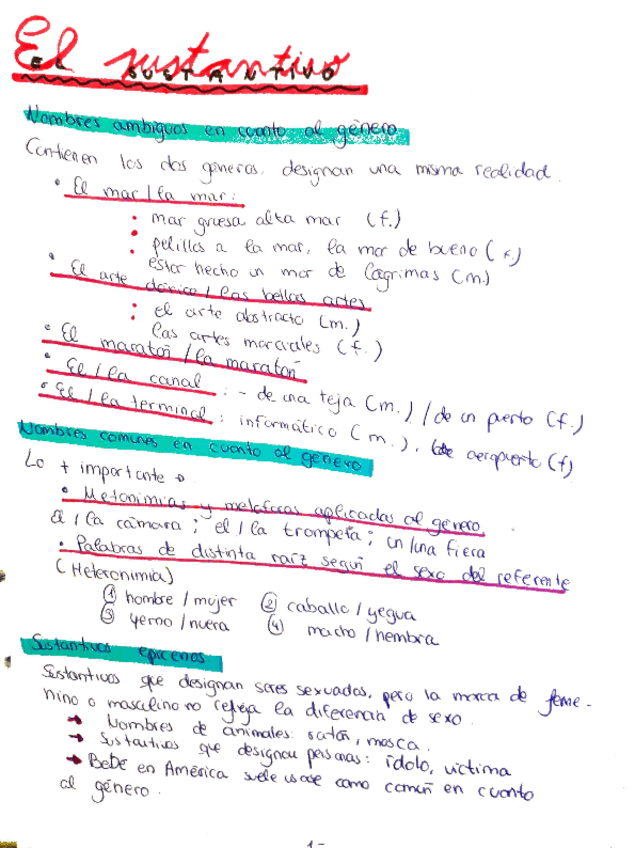 El sustantivo
SUSTANTIVO
Nombres ambiguos en cuanto al género
Contienen los dos géneros, designan una misma realidad.
• El mar / la mar:
: mar gruesa, alta mar (f.)
• pelillos a la mar, la mar de bueno (f.)
• estar hecho un mar de lágrimas (m.)
• El arte / las bellas artes
: el arte abstracto (m.)
las artes marciales (f.)
• El maratón / la maratón
• El / la canal: - de una teja (m.) / de un puerto (f.)
• El / la terminal: informático (m.), de aeropuerto (f)
Nombres comunes en cuanto al género
Lo + importante →
• Metonimias y metáforas aplicadas al género.
El / la cámara; el / la trompeta; un/una fiera
• Palabras de distinta raíz según el sexo del referente
(Heteronimia)
① hombre / mujer ② caballo / yegua
③ yerno / nuera ④ macho / hembra
Sustantivos epicenos
Sustantivos que designan seres sexuados, pero la marca de feme-
nino o masculino no refleja la diferencia de sexo.
→ Nombres de animales: ratón, mosca.
→ Sustantivos que designan personas: ídolo, víctima
→ Bebé en América suele usarse como común en cuanto
al género.